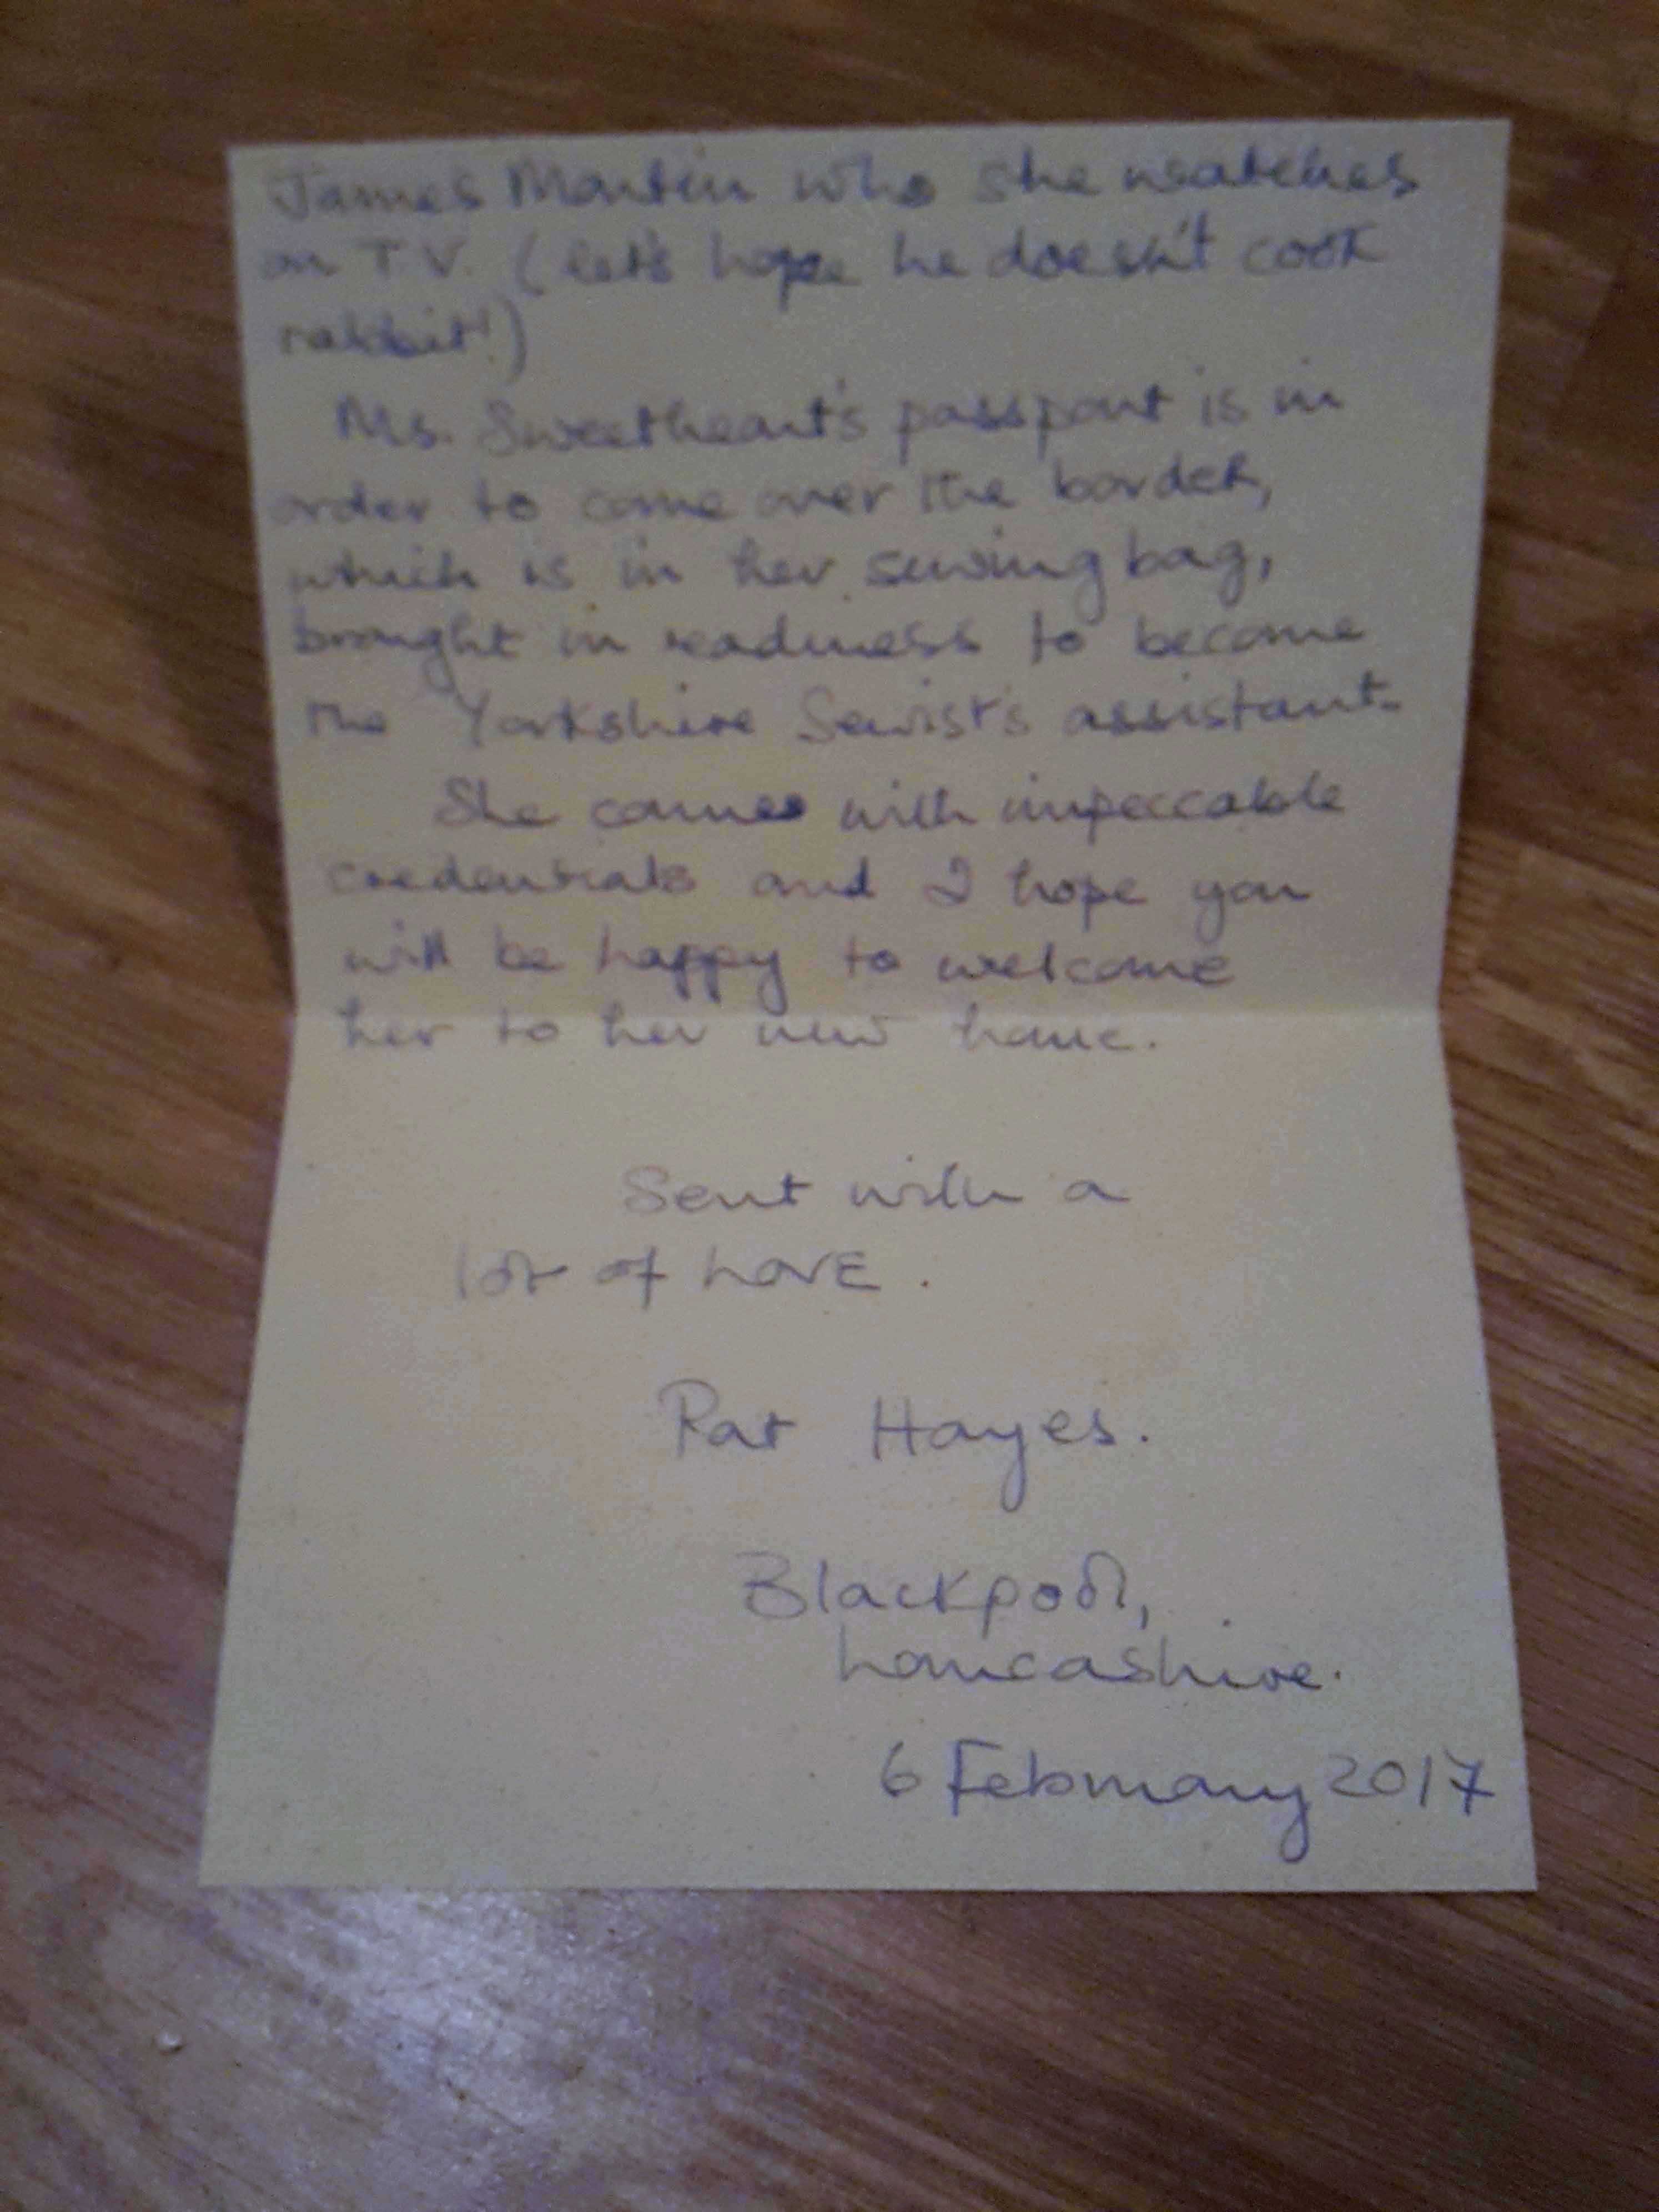 James Martin who she watches
on T.V. (let's hope he doesn't cook
rabbit!)
Ms. Sweetheart's passport is in
order to come over the border,
which is in her sewing bag,
brought in readiness to become
the Yorkshire Sewist's assistant.
She comes with impeccable
credentials and I hope you
will be happy to welcome
her to her new home.
Sent with a
lot of LOVE.
Pat Hayes.
Blackpool,
Lancashire.
6 February 2017